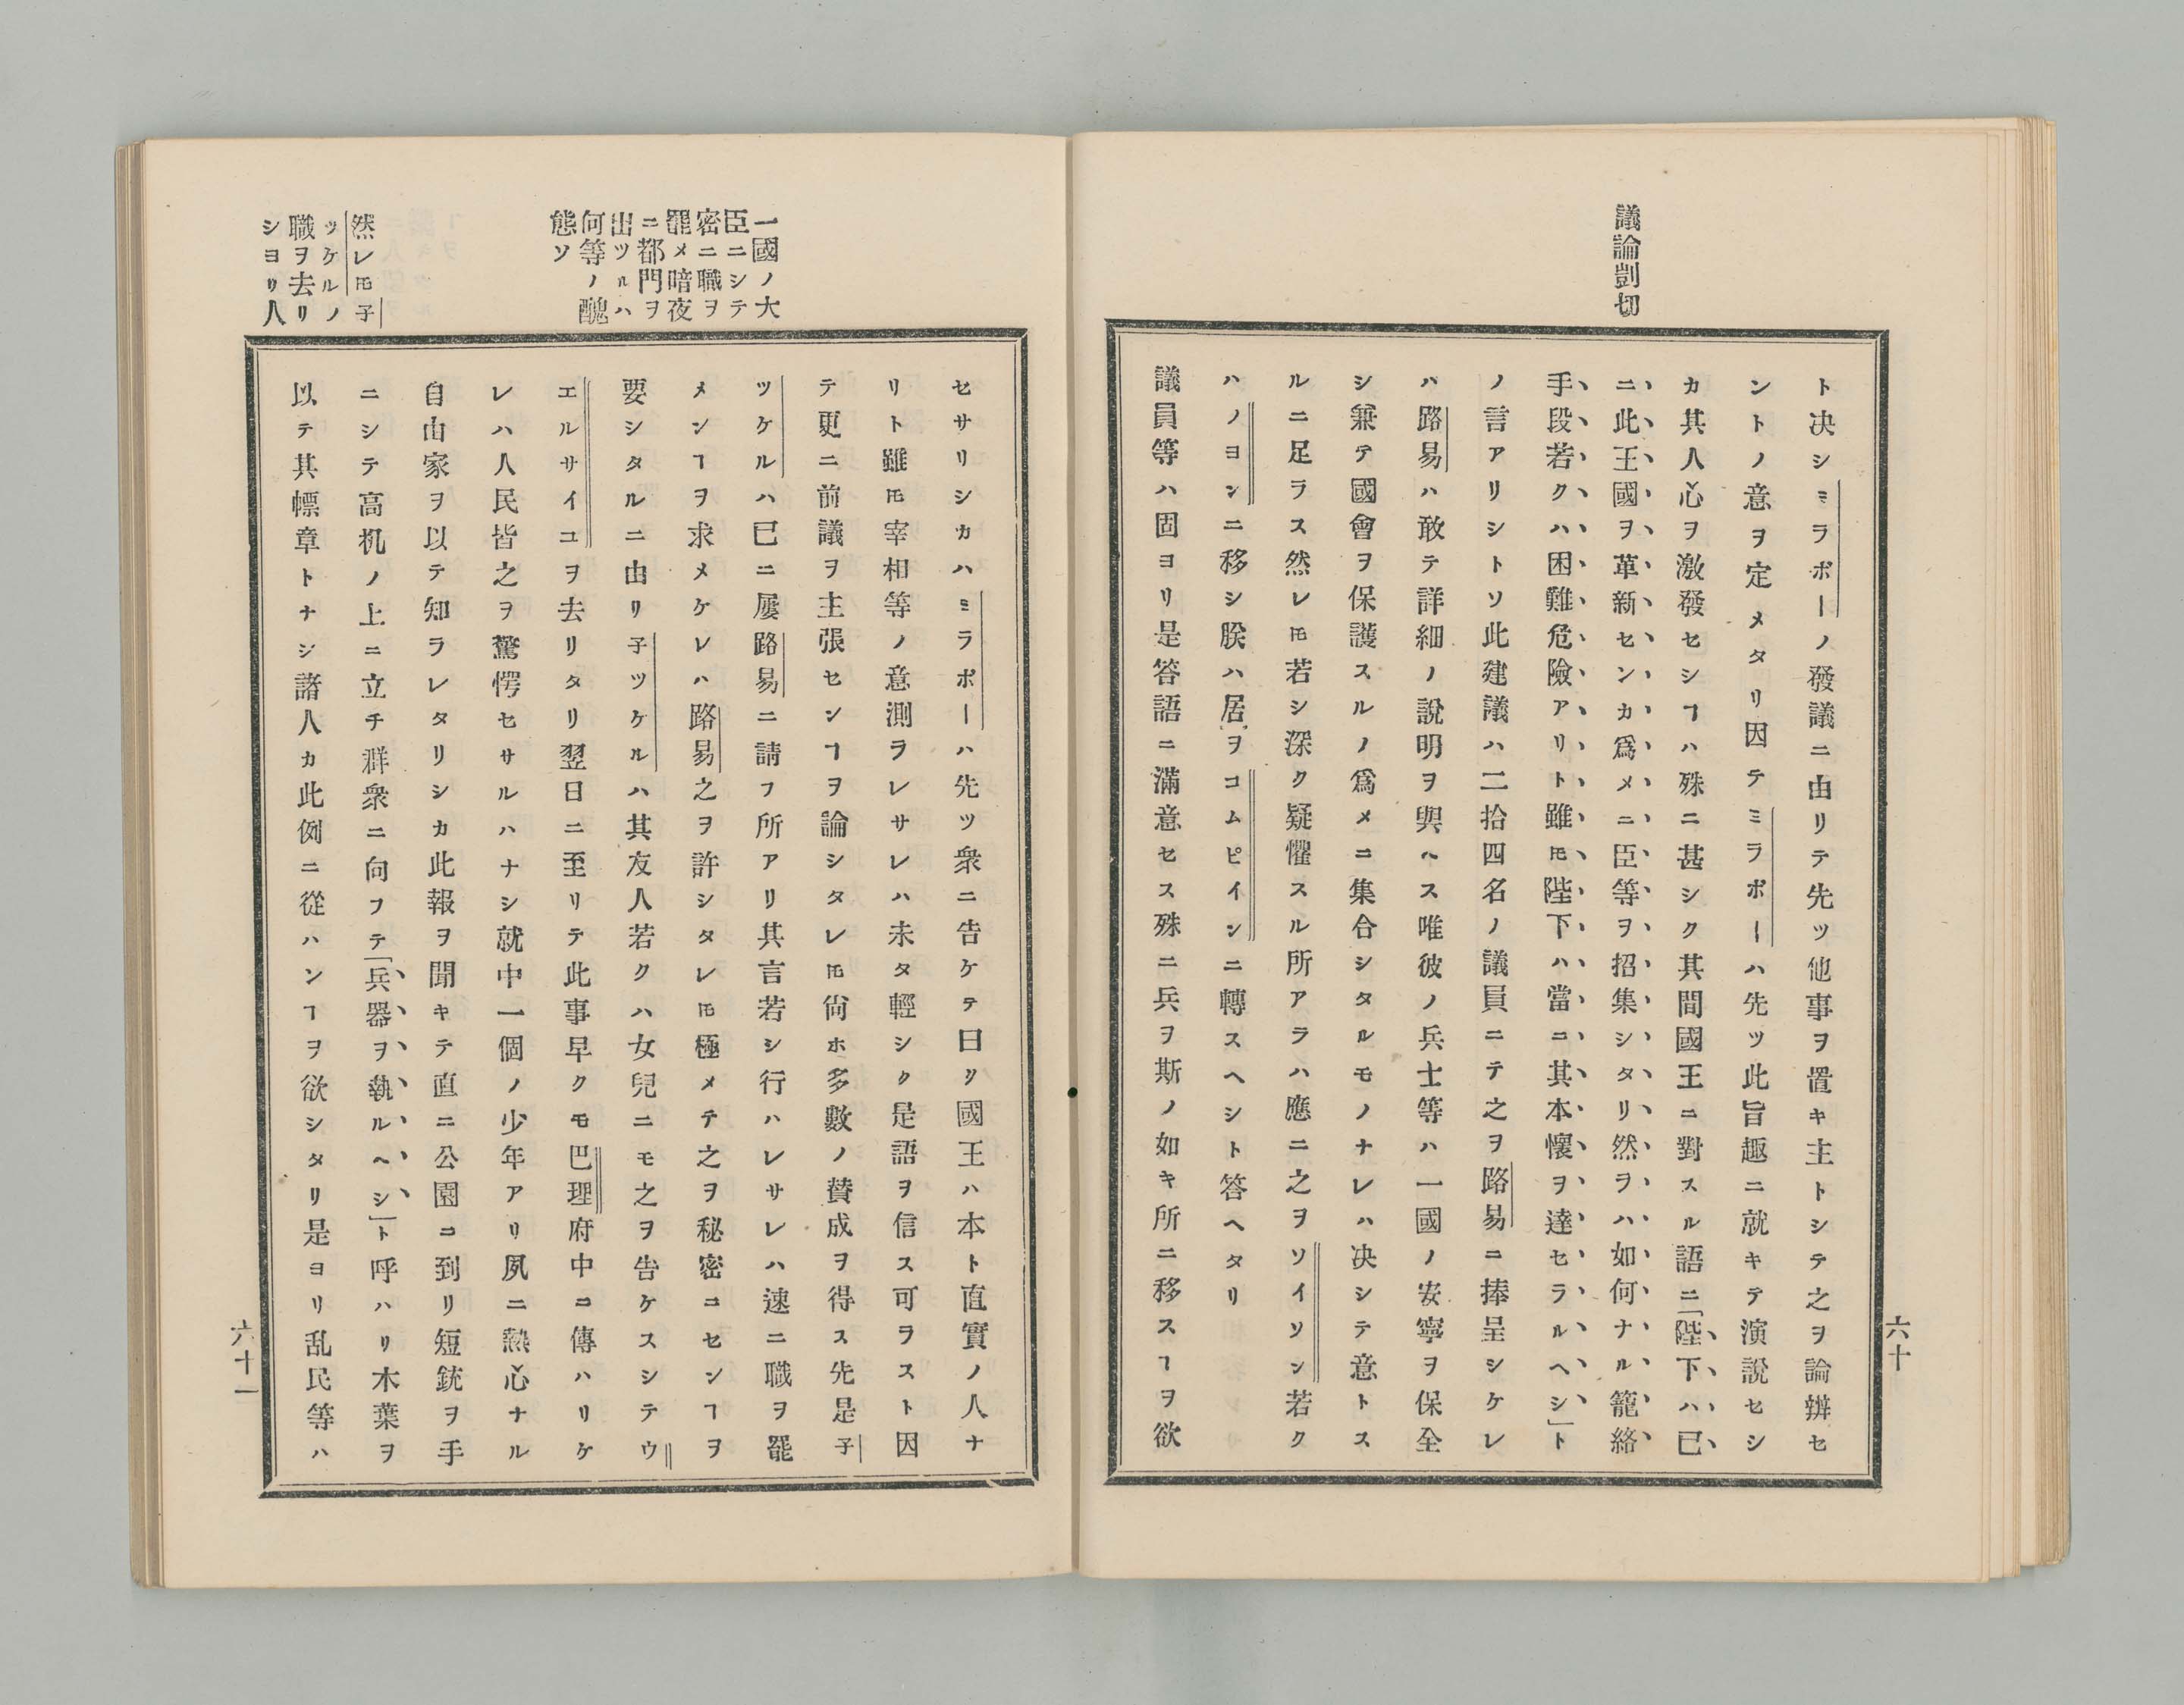 議論剴切
ト決シミラボーノ發議ニ由リテ先ツ他事ヲ置キ主トシテ之ヲ論辨セ
ントノ意ヲ定メタリ因テミラボーハ先ツ此旨趣ニ就キテ演説セシ
カ其人心ヲ激發セシヿハ殊ニ甚シク其間國王ニ對スル語ニ「陛下ハ已
ニ此王國ヲ革新センカ爲メニ臣等ヲ招集シタリ然ラハ如何ナル籠絡
手段若クハ困難危險アリト雖𪜈陛下ハ當ニ其本懷ヲ達セラルヘシ」ト
ノ言アリシトソ此建議ハ二拾四名ノ議員ニテ之ヲ路易ニ捧呈シケレ
ハ路易ハ敢テ詳細ノ說明ヲ與ヘス唯彼ノ兵士等ハ一國ノ安寧ヲ保全
シ兼テ國會ヲ保護スルノ爲メニ集合シタルモノナレハ決シテ意トス
ルニ足ラス然レ𪜈若シ深ク疑懼スル所アラハ應ニ之ヲソイソン若ク
ハノヨンニ移シ朕ハ居ヲコムピインニ轉スヘシト答ヘタリ
議員等ハ固ヨリ是答語ニ滿意セス殊ニ兵ヲ斯ノ如キ所ニ移スヿヲ欲
六十
一國ノ大
臣ニシテ
密ニ職ヲ
罷メ暗夜
ニ都門ヲ
出ツルハ
何等ノ醜
態ソ
然レ𪜈子
ツケルノ
職ヲ去リ
ショリ人
セサリシカハミラボーハ先ツ衆ニ告ケテ曰ク國王ハ本ト直實ノ人ナ
リト雖𪜈宰相等ノ意測ラレサレハ未タ輕シク是語ヲ信ス可ラスト因
テ更ニ前議ヲ主張センヿヲ論シタレ𪜈尙ホ多數ノ賛成ヲ得ス先是子
ツケルハ已ニ屢路易ニ請フ所アリ其言若シ行ハレサレハ速ニ職ヲ罷
メンヿヲ求メケレハ路易之ヲ許シタレ𪜈極メテ之ヲ秘密ニセンヿヲ
要シタルニ由リ子ツケルハ其友人若クハ女兒ニモ之ヲ告ケスシテウ
エルサイユヲ去リタリ翌日ニ至リテ此事早クモ巴理府中ニ傳ハリケ
レハ人民皆之ヲ驚愕セサルハナシ就中一個ノ少年アリ夙ニ熱心ナル
自由家ヲ以テ知ラレタリシカ此報ヲ聞キテ直ニ公園ニ到リ短銃ヲ手
ニシテ高机ノ上ニ立チ群衆ニ向フテ「兵器ヲ執ルヘシ」ト呼ハリ木葉ヲ
以テ其幖章トナシ諸人カ此例ニ從ハンヿヲ欲シタリ是ヨリ乱民等ハ
六十一